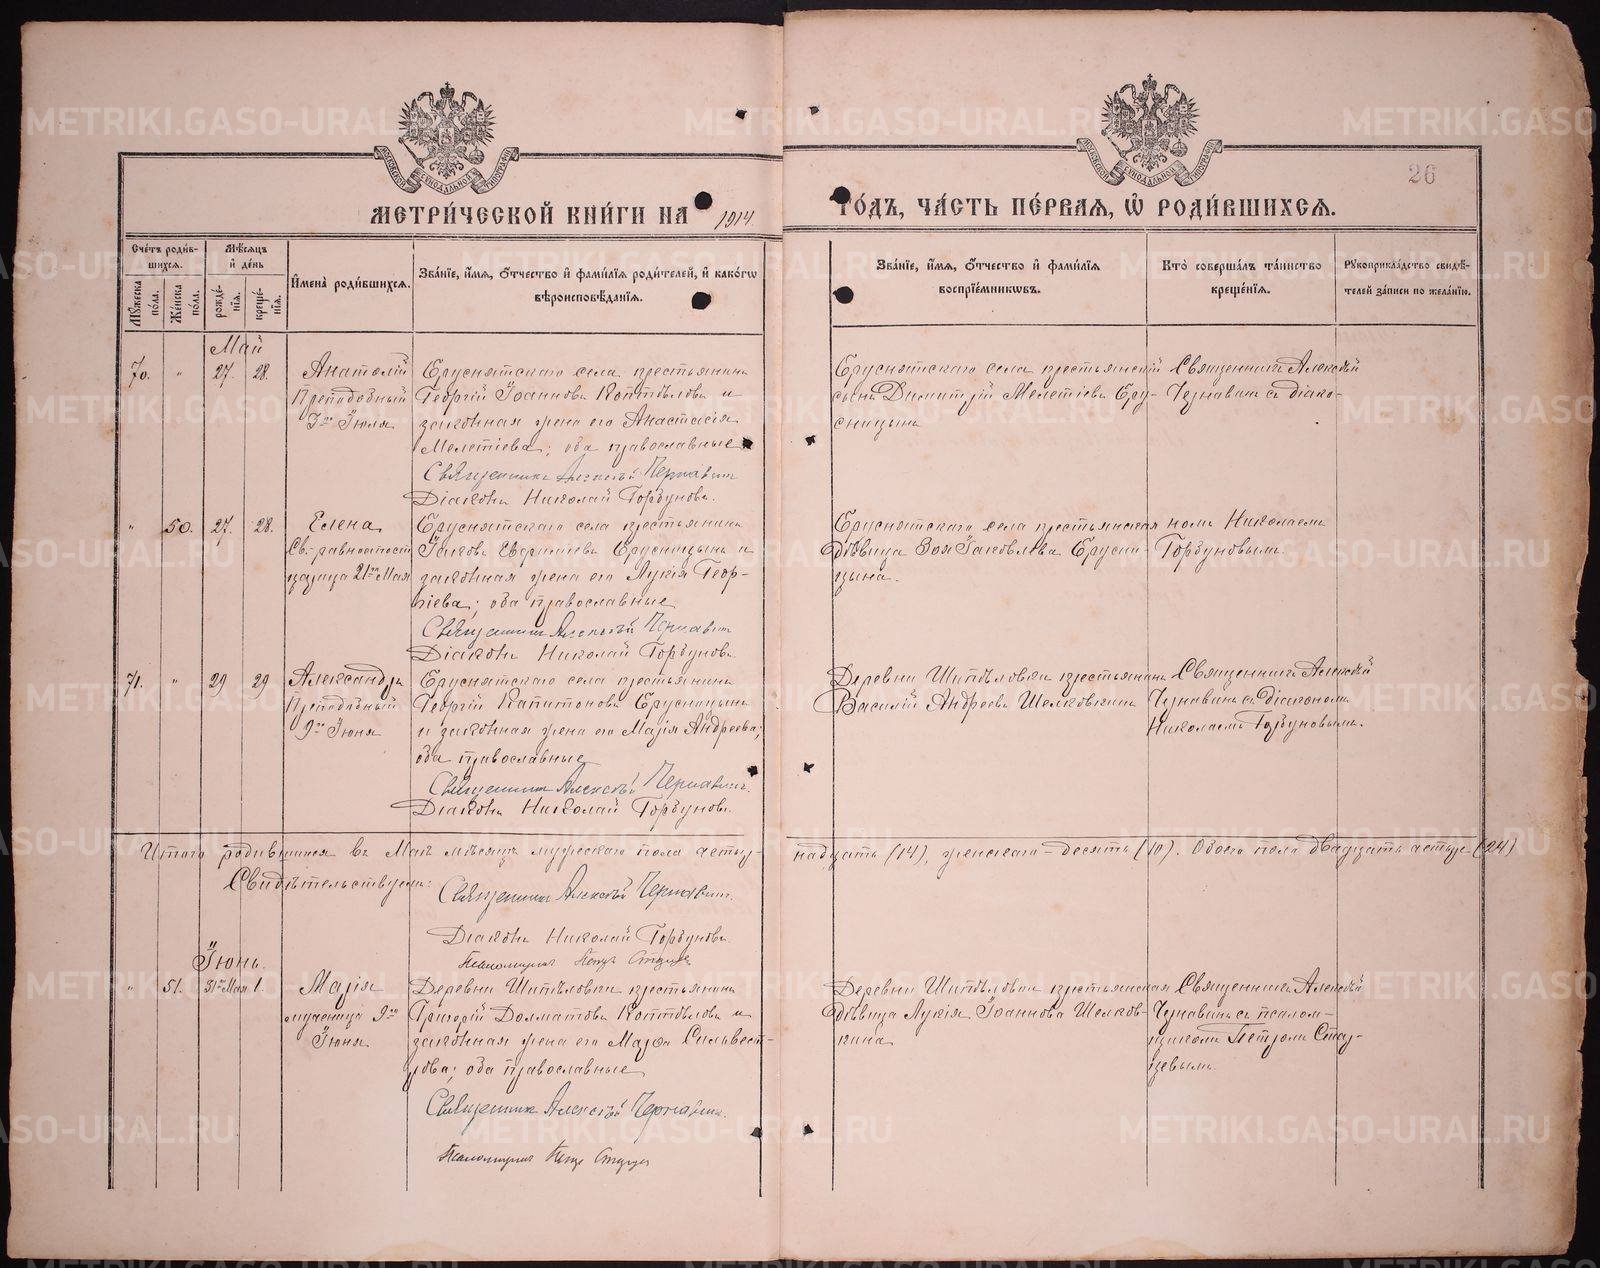 26
МЕТРИ́ЧЕСКОЙ КНИ́ГИ НА 1914 ГО́ДЪ, ЧА́СТЬ ПЕ́РВАЯ, Ѡ҆ РОДИ́ВШИХСЯ.
Сче́тъ роди́в-
шихся.
Мꙋ́жеска по́ла.
Же́нска по́ла.
Мѣ́сяцъ
и҆ де́нь
рожде́-
нїя.
креще́-
нїя.
И҆мена̀ роди́вшихся.
Зва́нїе, и҆́мя, ѻ҆́тчество и҆ фами́лїя роди́телей, и҆ како́гѡ
вѣроисповѣ́данїя.
Зва́нїе, и҆́мя, ѻ҆́тчество и҆ фами́лїя
воспрїе́мникѡвъ.
Кто̀ соверша́лъ та́инство
креще́нїя.
Рꙋкоприкла́дство свидѣ́-
телей за́писи по жела́нїю.
Май
70. " 27. 28.
Анатолій
Преподобный
3го Іюля
Бруснятскаго села крестьянинъ
Георгій Іоанновъ Коптѣловъ и
законная жена его Анастасія
Мелетіева; оба православные
Священникъ Алексѣй Чернавинъ
Діаконъ Николай Горбуновъ.
Бруснятскаго села крестьянскій
сынъ Димитрій Мелетіевъ Бру-
сницынъ
Священникъ Алексѣй
Чернавинъ съ діако-
" 50. 27. 28.
Елена
Св. равноапост.
царица 21го Мая
Бруснятскаго села крестьянинъ
Іаковъ Евфиміевъ Брусницынъ и
законная жена его Лукія Геор-
гіева; оба православные
Священникъ Алексѣй Чернавинъ
Діаконъ Николай Горбуновъ.
Бруснятскаго села крестьянская
дѣвица Зоя Іаковлева Брусни-
цына.
номъ Николаемъ
Горбуновымъ.
71. " 29 29
Александръ
Преподобный
9го Іюня
Бруснятскаго села крестьянинъ
Георгій Капитоновъ Брусницынъ
и законная жена его Марія Андреева;
оба православные
Священникъ Алексѣй Чернавинъ.
Діаконъ Николай Горбуновъ.
Деревни Шипѣловки крестьянинъ
Василій Андреевъ Шелковкинъ
Священникъ Алексѣй
Чернавинъ съ діакономъ
Николаемъ Горбуновымъ.
Итого родившихся въ Маѣ мѣсяцѣ мужескаго пола четыр-
надцать (14), женскаго - десять (10). Обоего пола двадцать четыре (24)
Свидѣтельствуемъ:
Священникъ Алексѣй Чернавинъ.
Діаконъ Николай Горбуновъ.
Псаломщикъ Петръ
Іюнь.
" 51. 31го Мая 1.
Марія
мученица 9го
Іюня
Деревни Шипѣловки крестьянинъ
Григорій Долматовъ Коптѣловъ и
законная жена его Марѳа Сильвест-
рова; оба православные
Священникъ Алексѣй Чернавинъ.
Псаломщикъ Петръ
Деревни Шипѣловки крестьянская
дѣвица Лукія Іоаннова Шелков-
кина
Священникъ Алексѣй
Чернавинъ съ псалом-
щикомъ Петромъ
METRIKI.GASO-URAL.RU